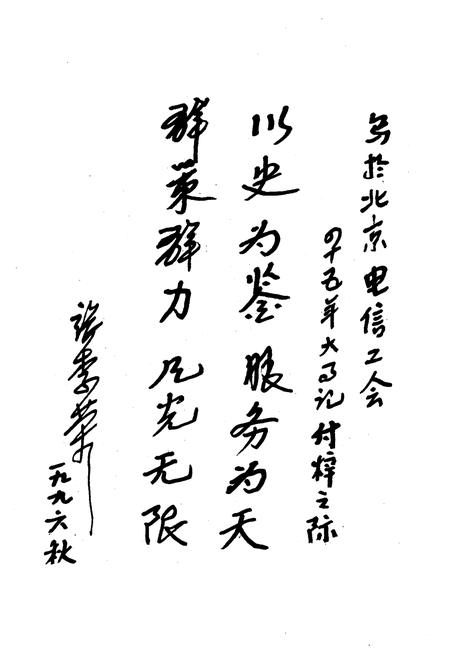 写於北京电信工会
四十五年大事记付梓之际
以史为鉴 服务为天
群策群力 风光无限
一九九六秋